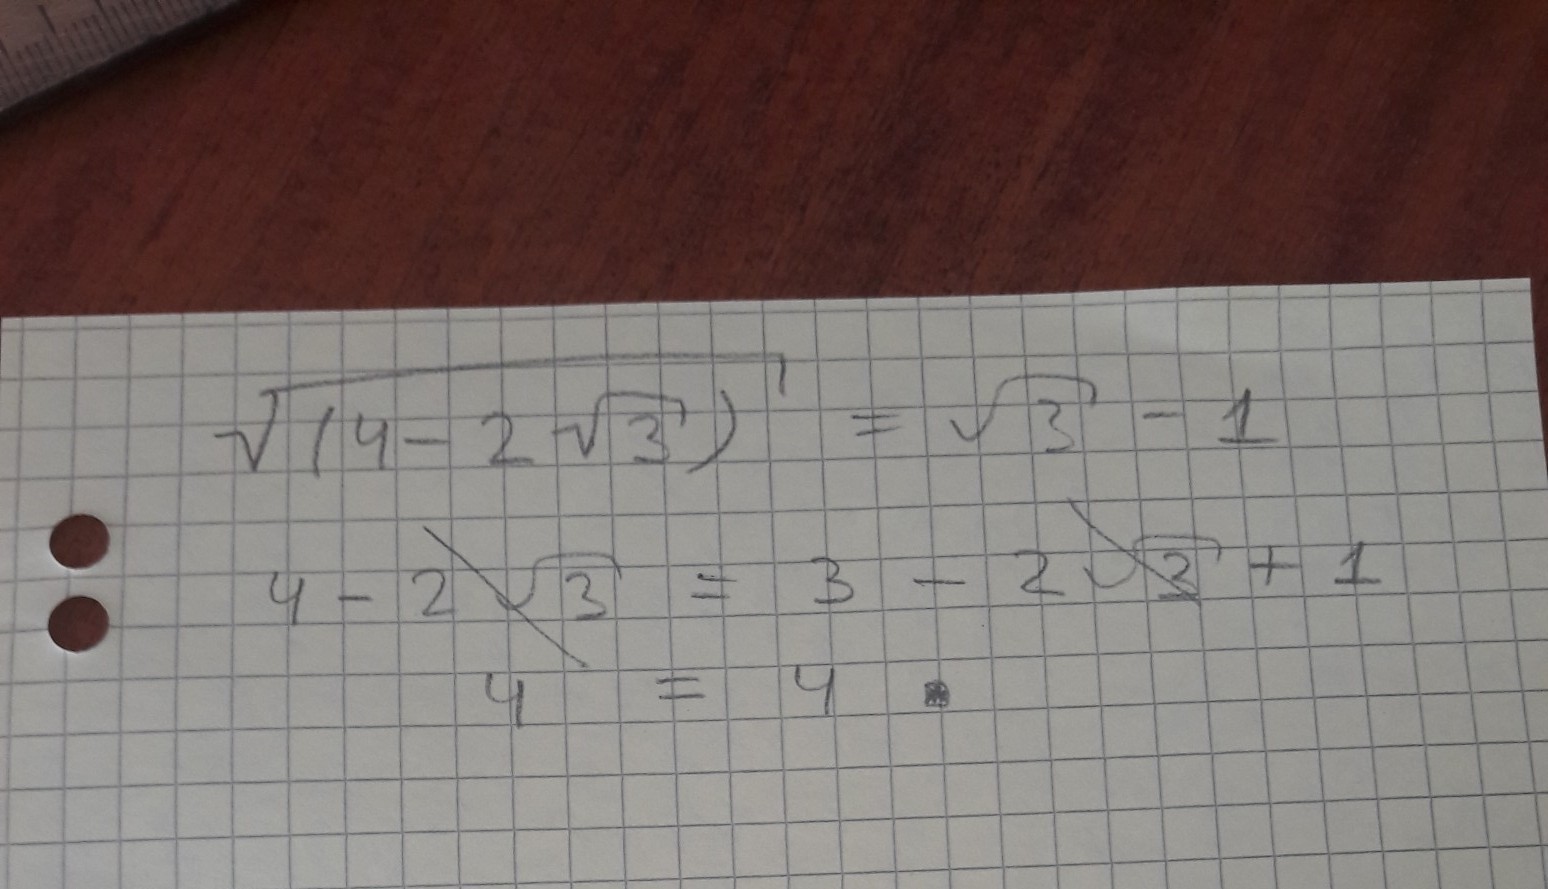 √(4 - 2√3) = √3 - 1
4 - 2√3 = 3 - 2√3 + 1
4 = 4 ▪